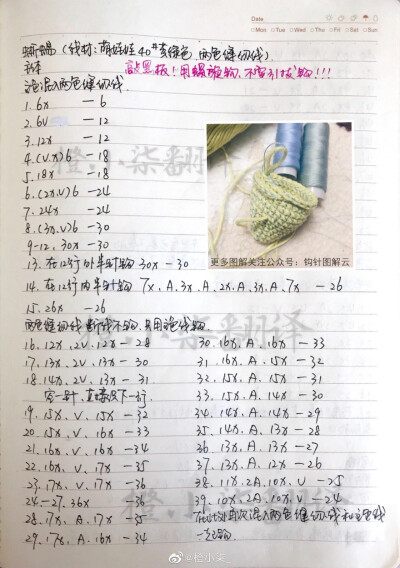 Date
Mo Tu We Th Fr Sa Su
蜥蜴 (线材: 萌娃娃40#黄绿色, 两色缝纫线)
敲黑板! 用螺旋钩, 不要引拔钩!!!
混入两色缝纫线
1. 6x —6
2. 6v —12
3. 12x —12
4. (v.x)6 —18
5. 18x —18
6. (2x.v)6 —24
7. 24x —24
8. (3x.v)6 —30
9-12. 30x —30
更多图解关注公众号：钩针图解云
13. 在12行外半针钩 30x —30
14. 在12行内半针钩 7x.A.3x.A.2x.A.3x.A.7x —26
15. 26x —26
两色缝纫线断线不钩, 只用线钩
16. 12x.2v.12x —28
17. 13x.2v.13x —30
18. 14x.2v.13x —31
空一针, 直接钩下一行
19. 15x.v.15x —32
20. 15x.v.16x —33
21. 16x.v.16x —34
22. 16x.v.17x —35
23. 17x.v.17x —36
24-27. 36x —36
28. 17x.A.17x —35
29. 17x.A.16x —34
30. 16x.A.16x —33
31. 16x.A.15x —32
32. 15x.A.15x —31
33. 15x.A.14x —30
34. 14x.A.14x —29
35. 14x.A.13x —28
36. 13x.A.13x —27
37. 13x.A.12x —26
38. 11x.2A.10x.v —25
39. 10x.2A.10x.v —24
在此处再次混入两色缝纫线和主色线
一起钩
橙小柒翻译
@橙小柒